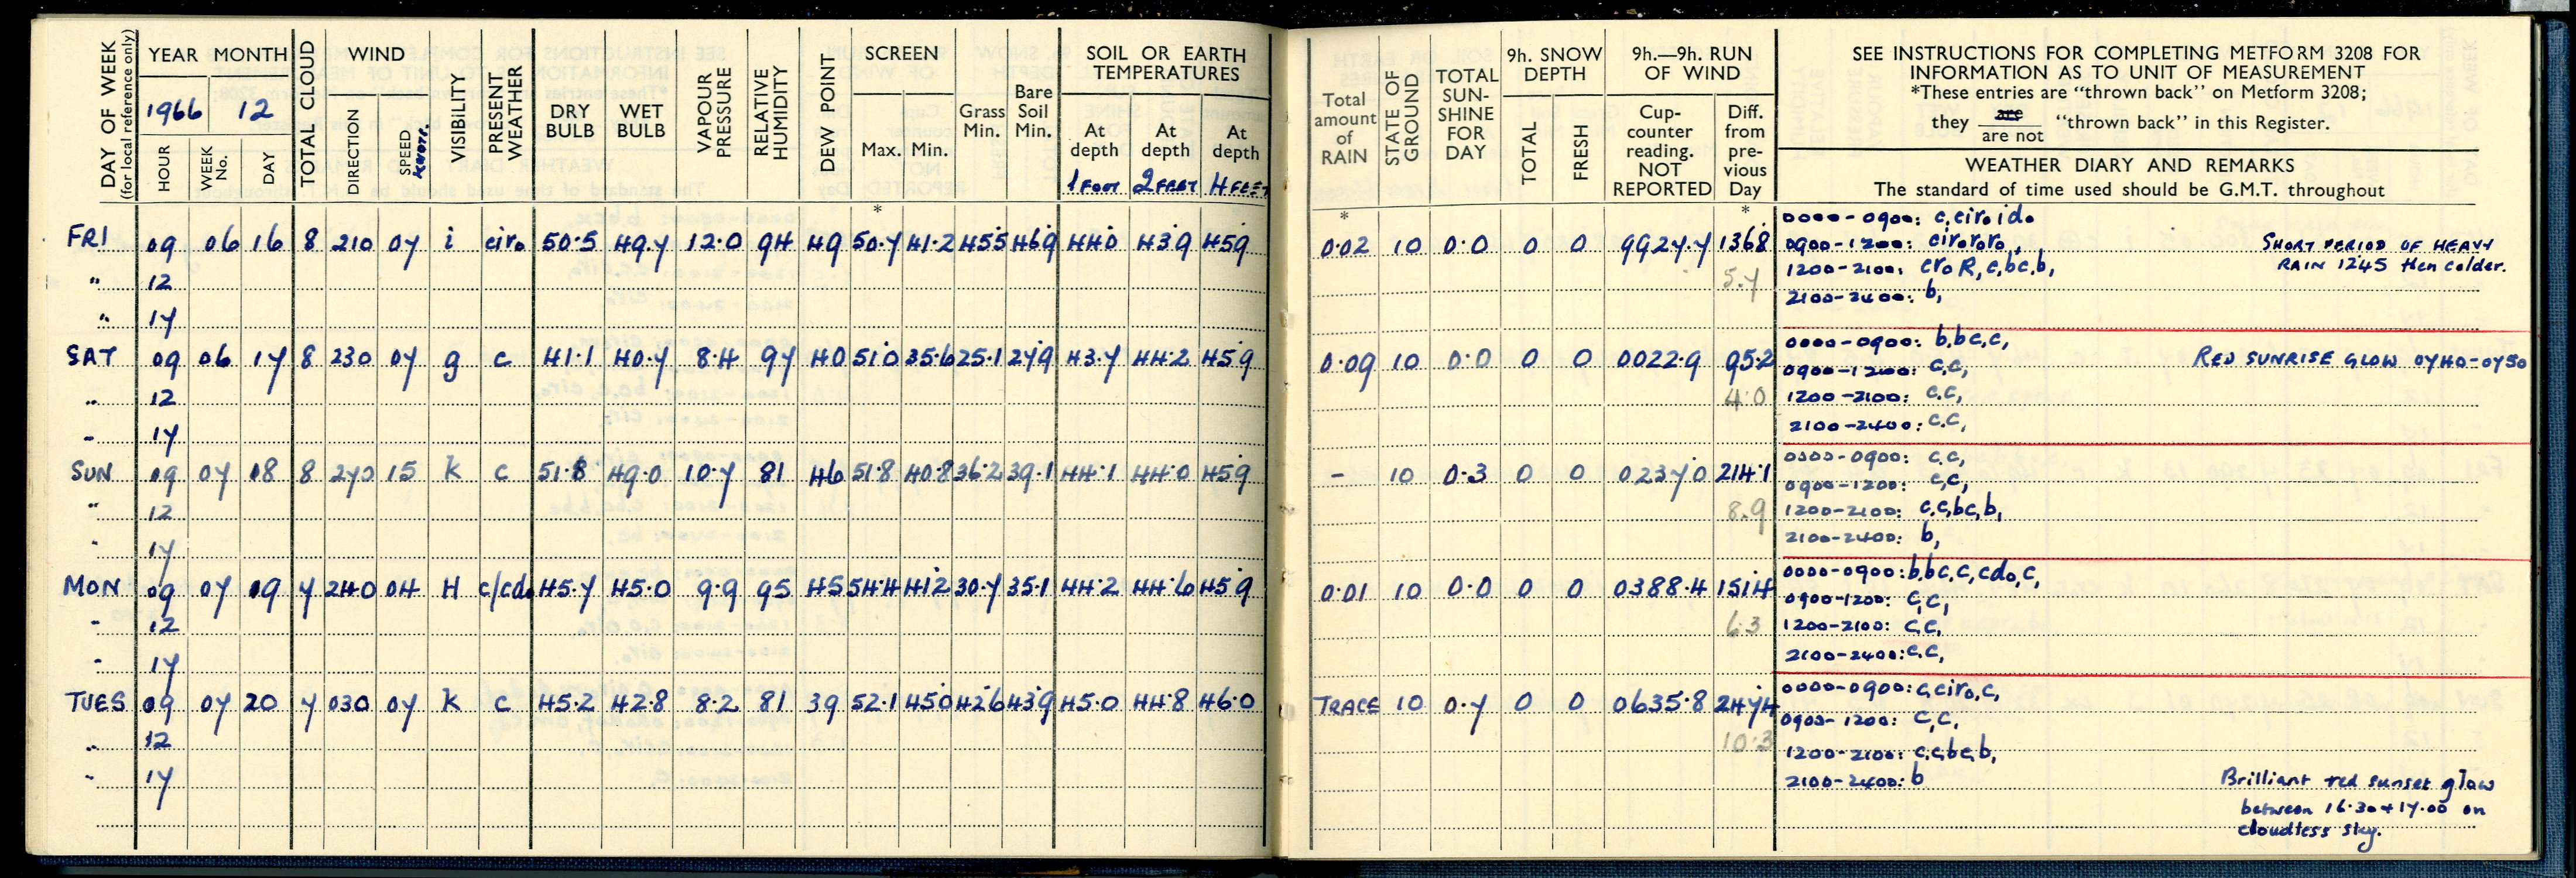 DAY OF WEEK (for local reference only)
YEAR MONTH
1966 12
HOUR WEEK No. DAY
TOTAL CLOUD
WIND
DIRECTION SPEED KNOTS.
VISIBILITY
PRESENT WEATHER
DRY BULB WET BULB
VAPOUR PRESSURE
RELATIVE HUMIDITY
DEW POINT
SCREEN
Max. Min.
Grass Min. Bare Soil Min.
SOIL OR EARTH TEMPERATURES
At depth At depth At depth
1 FOOT 2 FEET 4 FEET
*
FRI 09 06 16 8 210 07 i ciro 50.5 49.7 12.0 94 49 50.7 41.2 45.5 46.9 44.0 43.9 45.9
" 12
" 17
SAT 09 06 17 8 230 07 g c 41.1 40.7 8.4 97 40 51.0 35.6 25.1 27.9 43.7 44.2 45.9
" 12
" 17
SUN 09 07 18 8 270 15 k c 51.8 49.0 10.7 81 46 51.8 40.8 36.2 39.1 44.1 44.0 45.9
" 12
" 17
MON 09 07 19 7 240 04 H c/cdo 45.7 45.0 9.9 95 45 54.4 41.2 30.7 35.1 44.2 44.6 45.9
" 12
" 17
TUES 09 07 20 7 030 07 k c 45.2 42.8 8.2 81 39 52.1 45.0 42.6 43.9 45.0 44.8 46.0
" 12
" 17
Total amount of RAIN
STATE OF GROUND
TOTAL SUN- SHINE FOR DAY
9h. SNOW DEPTH
TOTAL FRESH
9h.—9h. RUN OF WIND
Cup- counter reading. NOT REPORTED
Diff. from pre- vious Day
SEE INSTRUCTIONS FOR COMPLETING METFORM 3208 FOR
INFORMATION AS TO UNIT OF MEASUREMENT
*These entries are "thrown back" on Metform 3208;
they are / are not "thrown back" in this Register.
WEATHER DIARY AND REMARKS
The standard of time used should be G.M.T. throughout
* *
0.02 10 0.0 0 0 9927.7 136.8
5.7
0000-0900: c,ciro,ido
0900-1200: cirororo,
1200-2100: croR,c,bc,b,
2100-2400: b,
SHORT PERIOD OF HEAVY
RAIN 1245 then colder.
0.09 10 0.0 0 0 0022.9 95.2
4.0
0000-0900: b,bc,c,
0900-1200: c,c,
1200-2100: c,c,
2100-2400: c.c,
RED SUNRISE GLOW 0740-0750
- 10 0.3 0 0 0237.0 214.1
8.9
0000-0900: c,c,
0900-1200: c,c,
1200-2100: c,c,bc,b,
2100-2400: b,
0.01 10 0.0 0 0 0388.4 151.4
6.3
0000-0900: b,bc,c,cdo,c,
0900-1200: c,c,
1200-2100: c,c,
2100-2400: c,c,
TRACE 10 0.7 0 0 0635.8 247.4
10.3
0000-0900: c,ciro,c,
0900-1200: c,c,
1200-2100: c,c,bc,b,
2100-2400: b
Brilliant red sunset glow
between 16.30 + 17.00 on
cloudless sky.